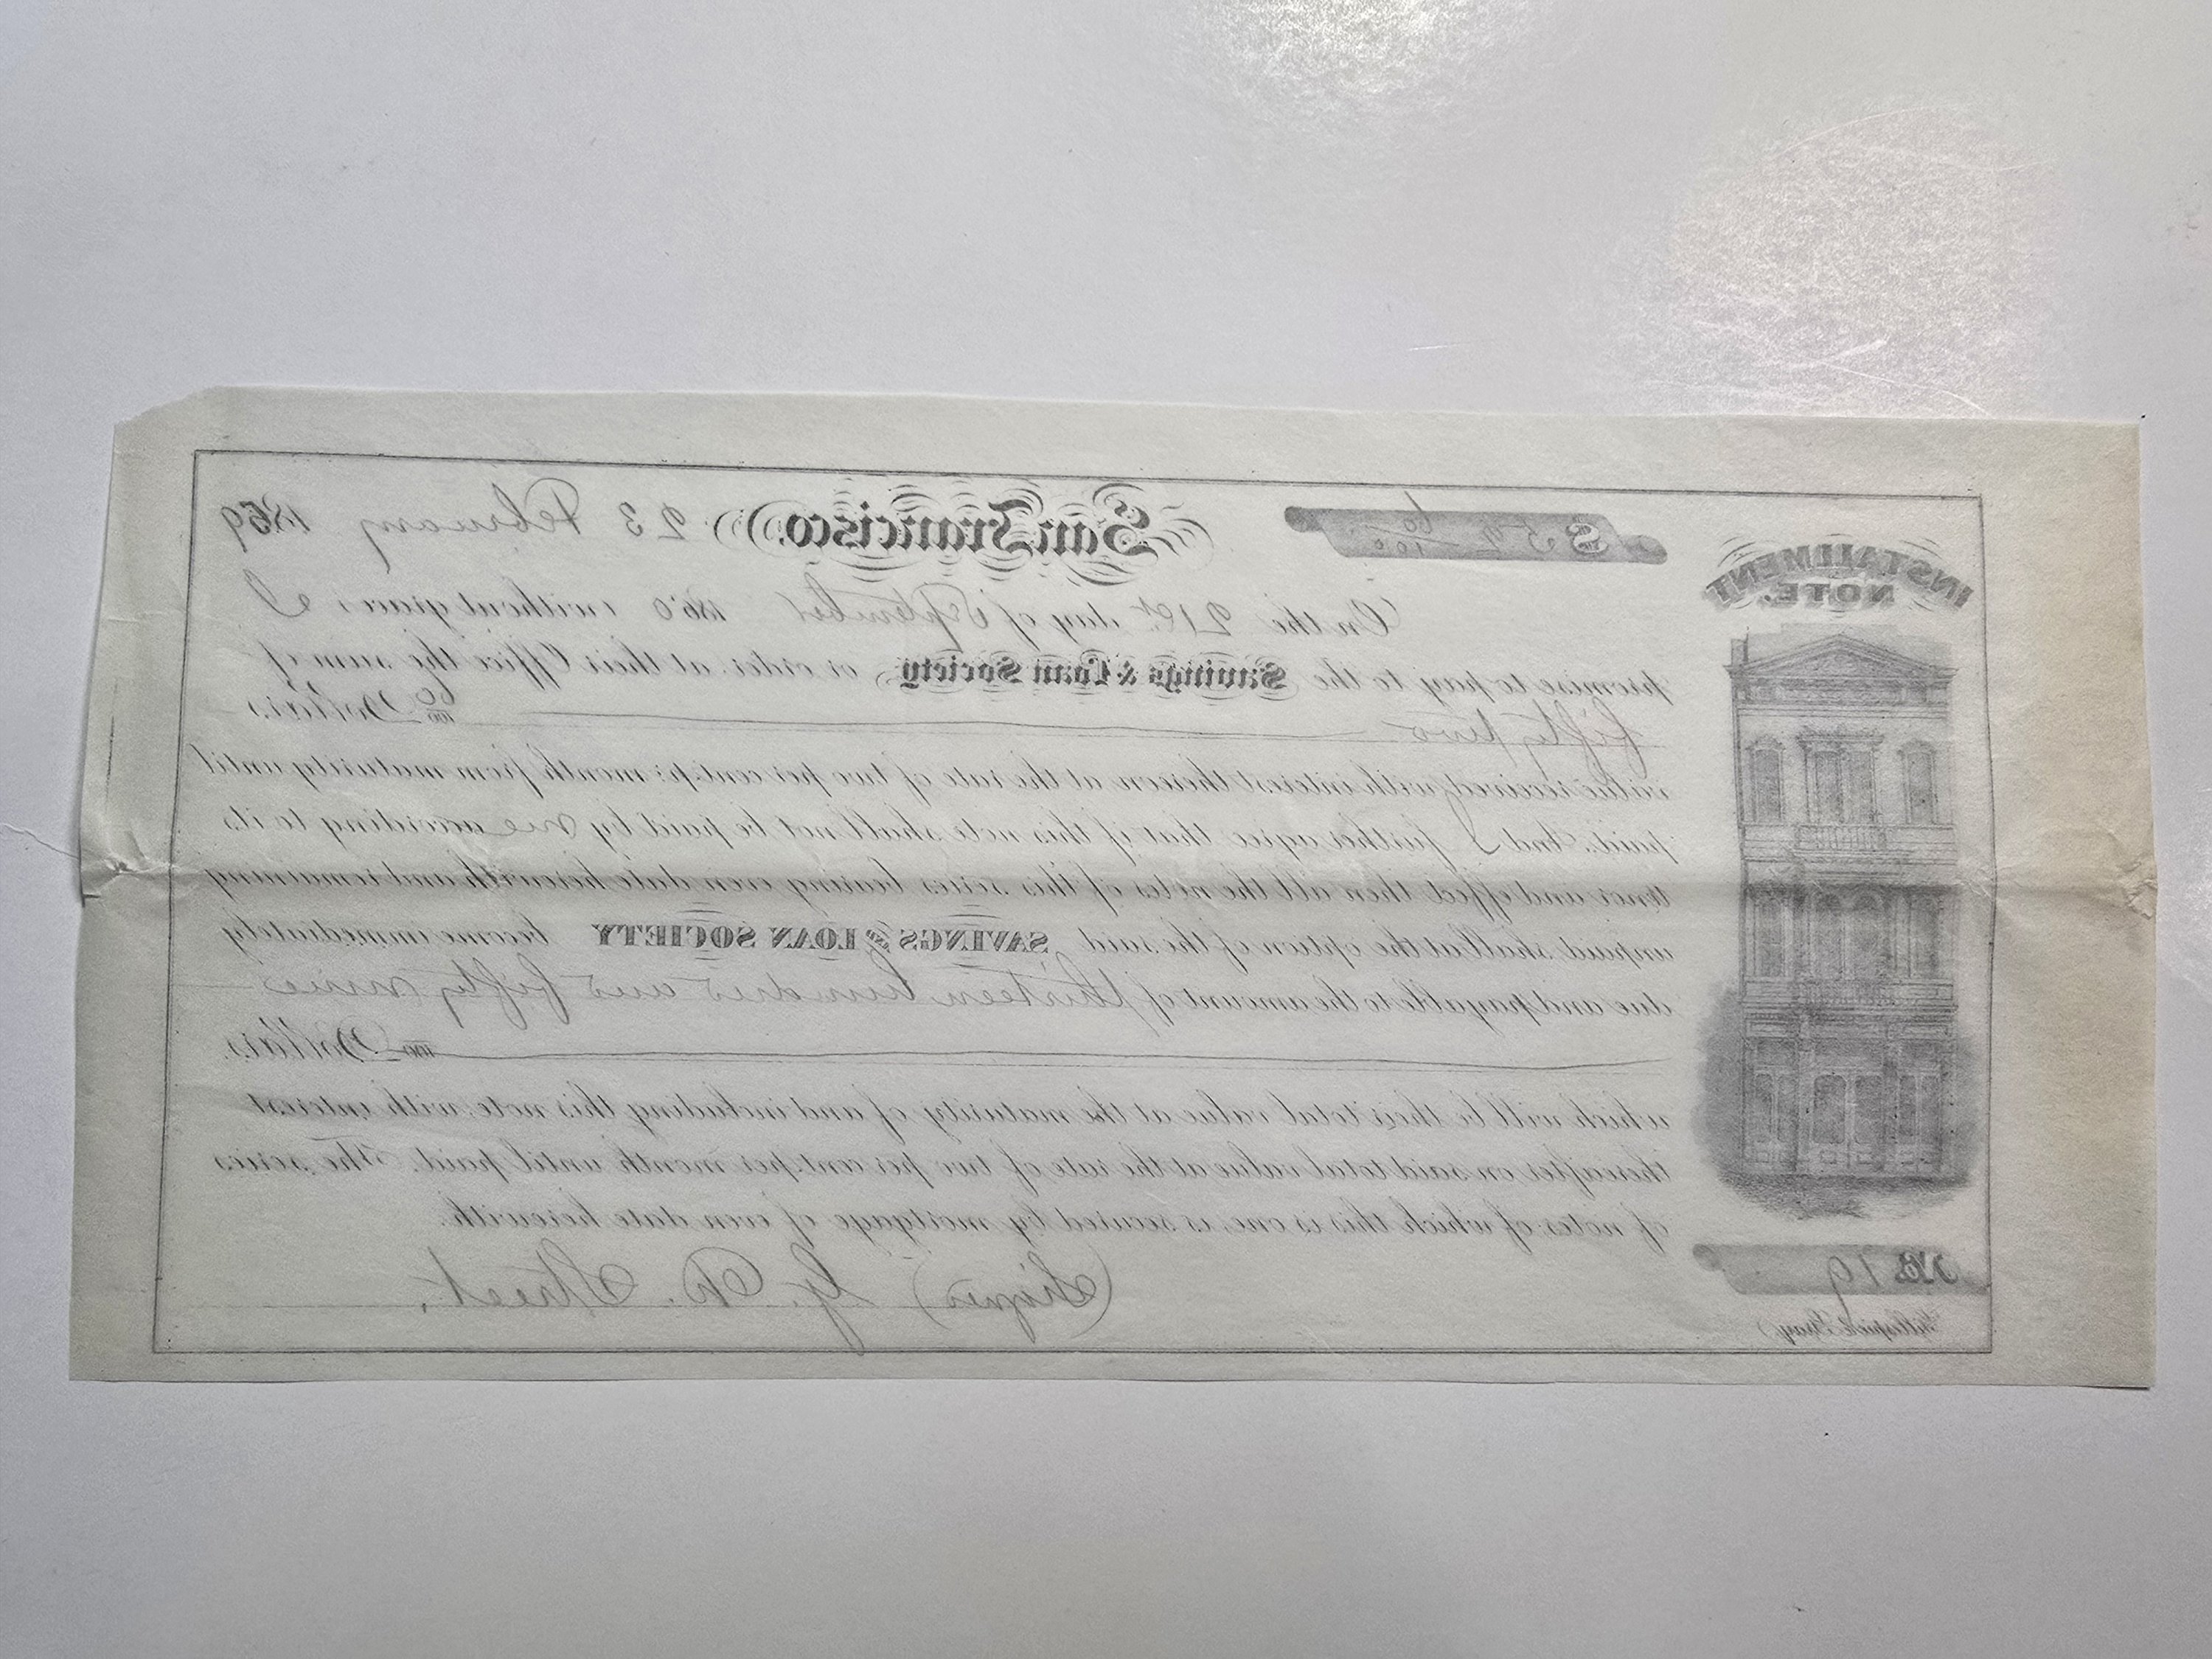 INSTALLMENT
NOTE.
$ 52 60/100 San Francisco. 23 February 1869
On the 21st day of September 18 without grace I
promise to pay to the Savings & Loan Society or order, at their Office the sum of
fifty two 60/100 Dollars
value received, with interest thereon at the rate of two per cent. pr. month from maturity until
paid. And I further agree that if this note shall not be paid by me according to its
tenor and effect then all the notes of this series bearing even date herewith and remaining
unpaid shall at the option of the said SAVINGS AND LOAN SOCIETY become immediately
due and payable to the amount of thirteen hundred and fifty nine
/100 Dollars.
which will be their total value at the maturity of and including this note, with interest
thereafter on said total value at the rate of two per cent. per month until paid. The series
of notes of which this is one, is secured by mortgage of even date herewith.
(Signed) Street.
No. 19